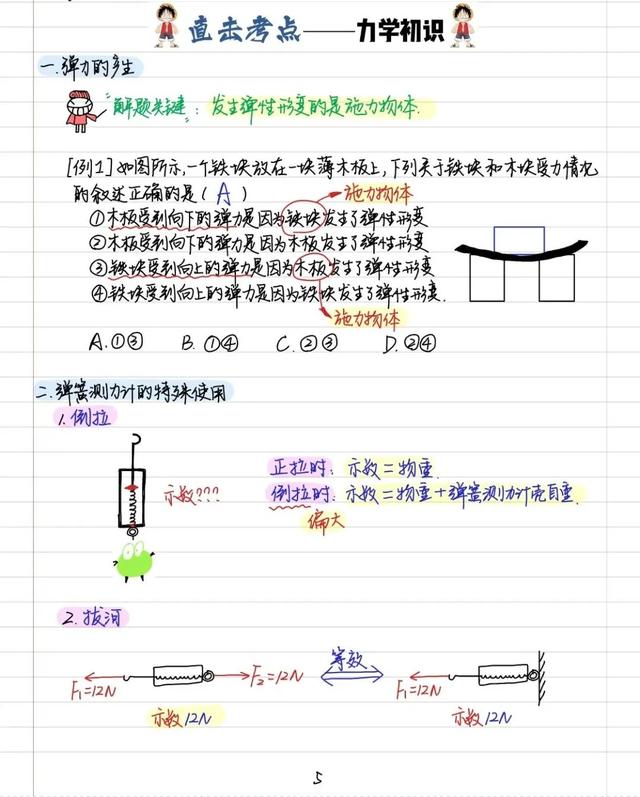 直击考点——力学初识
一.弹力的产生
解题关键：发生弹性形变的是施力物体.
[例1]如图所示,一个铁块放在一块薄木板上,下列关于铁块和木块受力情况
的叙述正确的是(A)
施力物体
①木板受到向下的弹力是因为铁块发生了弹性形变
②木板受到向下的弹力是因为木板发生了弹性形变
③铁块受到向上的弹力是因为木板发生了弹性形变
④铁块受到向上的弹力是因为铁块发生了弹性形变.
施力物体
A.①③ B.①④ C.②③ D.②④
二.弹簧测力计的特殊使用
1.倒拉
示数???
正拉时：示数=物重.
倒拉时：示数=物重+弹簧测力计壳自重.
偏大
2.拔河
F₁=12N F₂=12N 等效 F₁=12N
示数12N 示数12N
5